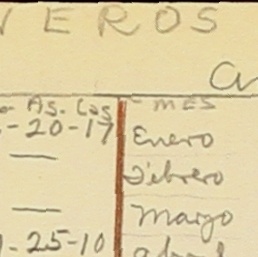 VEROS
As. Cas - MES
-20-17 Enero
— Febrero
— Marzo
-25-10